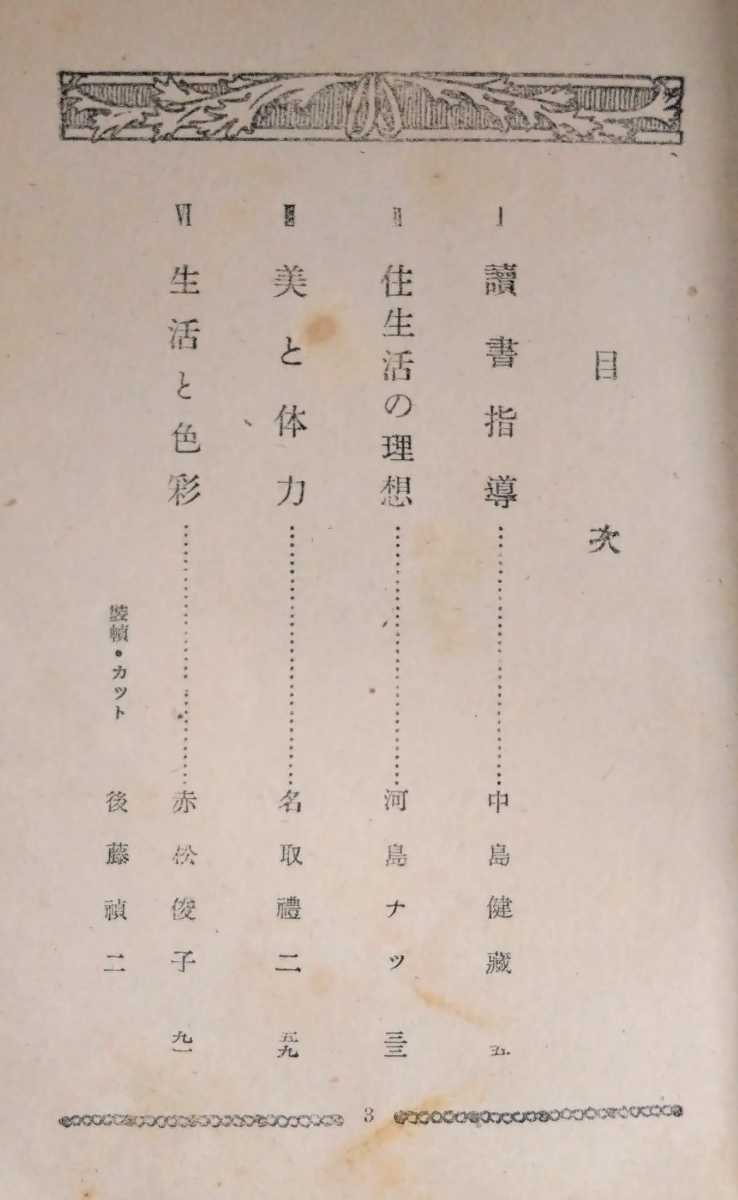 目次
Ⅰ 讀書指導……………………中島健藏 五
Ⅱ 住生活の理想……………………河島ナツ 三三
Ⅲ 美と体力……………………名取禮二 五九
Ⅵ 生活と色彩……………………赤松俊子 九一
裝幀・カット 後藤禎二
3